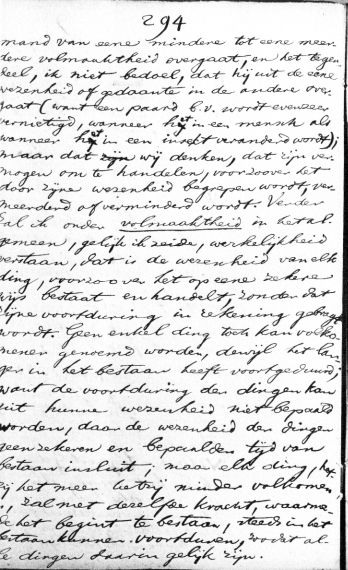 294
mand van eene mindere tot eene meer
dere volmaaktheid overgaat, en het tegen
deel, ik niet bedoel, dat hij uit de eene
wezenheid of gedaante in de andere over
gaat (want een paard b.v. wordt evenzeer
vernietigd, wanneer het in een mensch als
wanneer het in een insekt veranderd wordt);
maar dat zijn wij denken, dat zijn ver
mogen om te handelen, voorzoover het
door zijne wezenheid begrepen wordt, ver
meerderd of verminderd wordt. Verder
zal ik onder volmaaktheid in het al
gemeen, gelijk ik zeide, werkelijkheid
verstaan, dat is de wezenheid van elk
ding, voorzoover het op eene zekere
wijs bestaat en handelt, zonder dat
zijne voortduring in rekening gebragt
wordt. Geen enkel ding toch kan volko
mener genoemd worden, dewijl het lan
ger in het bestaan heeft voortgeduurd;
want de voortduring der dingen kan
uit hunne wezenheid niet bepaald
worden, daar de wezenheid der dingen
geen zekeren en bepaalden tijd van
bestaan insluit; maar elk ding, het
zij het meer hetzij minder volkomen
, zal met dezelfde kracht, waarme
de het begint te bestaan, steeds in het
bestaan kunnen voortduren, zoodat al
le dingen daarin gelijk zijn.